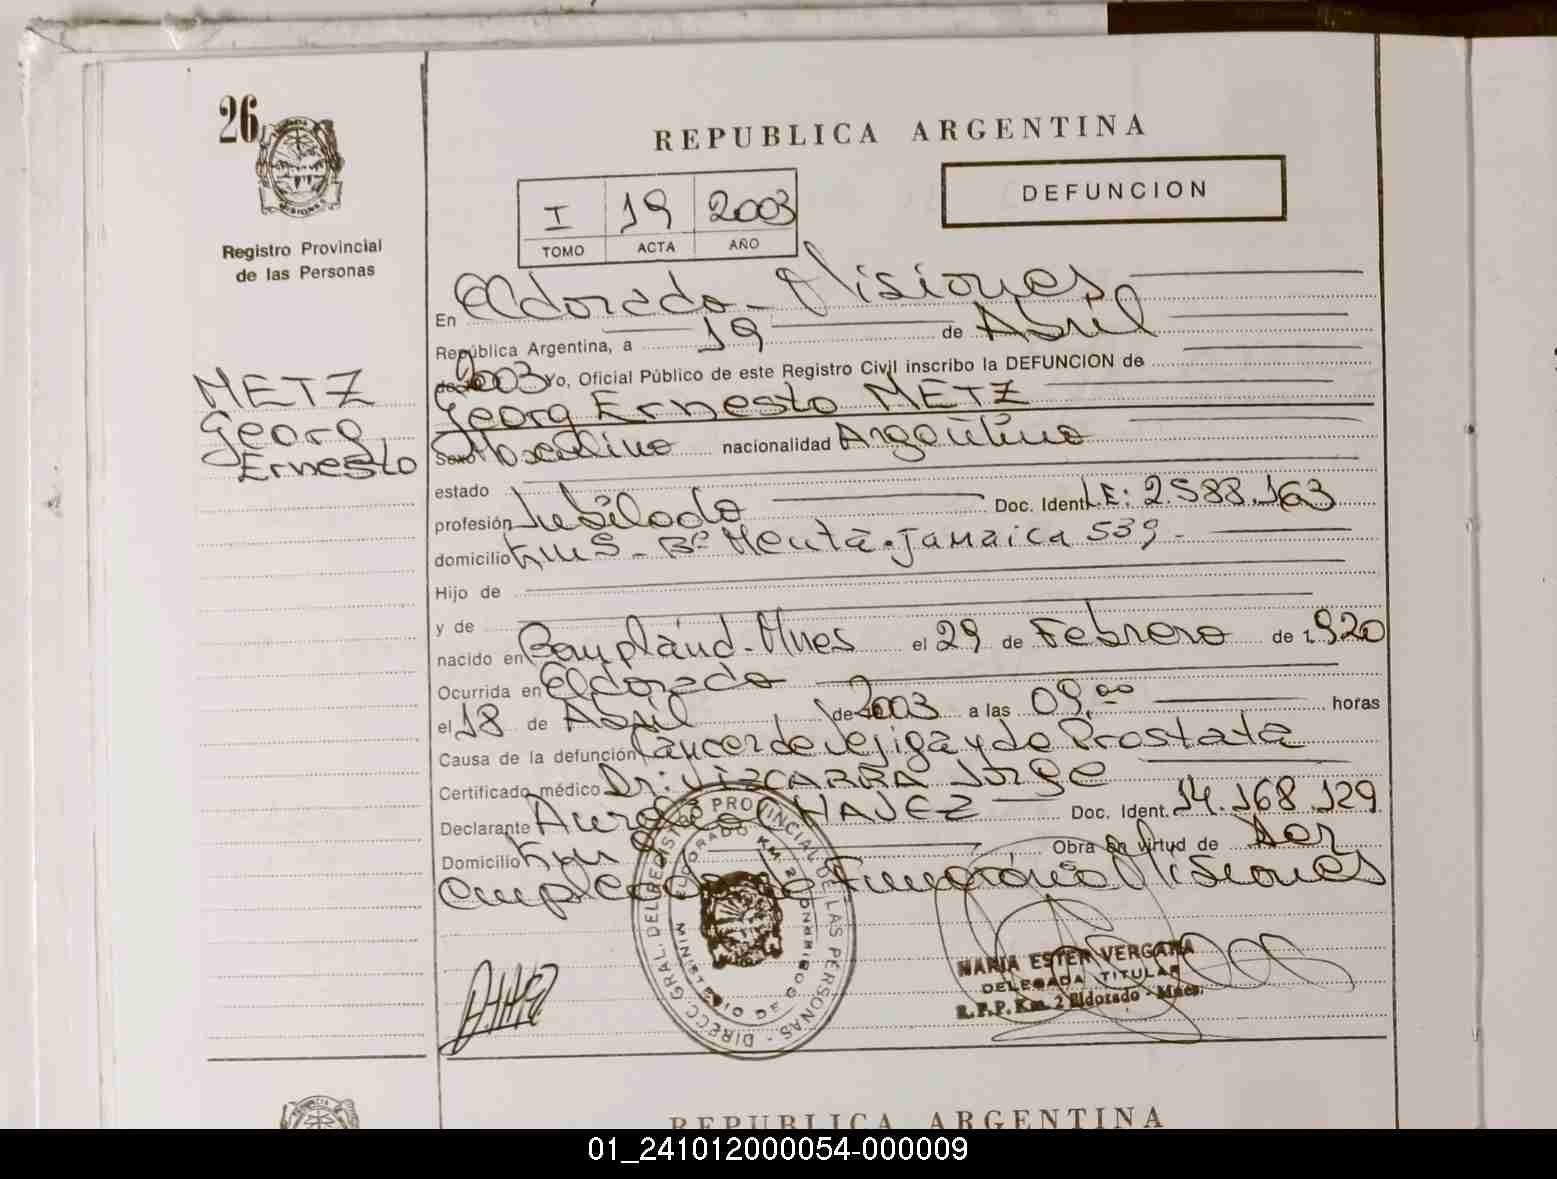 26
REPUBLICA ARGENTINA
DEFUNCION
I 19 2003
TOMO ACTA AÑO
Registro Provincial
de las Personas
METZ
Georg
Ernesto
En Eldorado - Misiones
República Argentina, a 19 de Abril
de 2003 Yo, Oficial Público de este Registro Civil inscribo la DEFUNCION de
Georg Ernesto METZ
Sexo Masculino nacionalidad Argentino
estado
profesión Jubilado Doc. Ident. L.E: 2.588.163
domicilio Km 9 - Bº Menta - Jamaica 539 -
Hijo de
y de
nacido en Bompland - Mnes el 29 de Febrero de 1.920
Ocurrida en Eldorado
el 18 de Abril de 2003 a las 09,00 horas
Causa de la defunción Cancer de Vejiga y de Prostata
Certificado médico Dr: VIZCARRA Jorge
Declarante CHAVEZ Doc. Ident. 14.168.129
Domicilio Km 9 Obra en virtud de ser
empleado de Funeraria Misiones
DIRECC. GRAL. DEL REGISTRO PROVINCIAL DE LAS PERSONAS
MINISTERIO DE GOBIERNO
ELDORADO KM. 2
MARIA ESTER VERGARA
DELEGADA TITULAR
R.P.P. Km. 2 Eldorado - Mnes.
REPUBLICA ARGENTINA
01_241012000054-000009